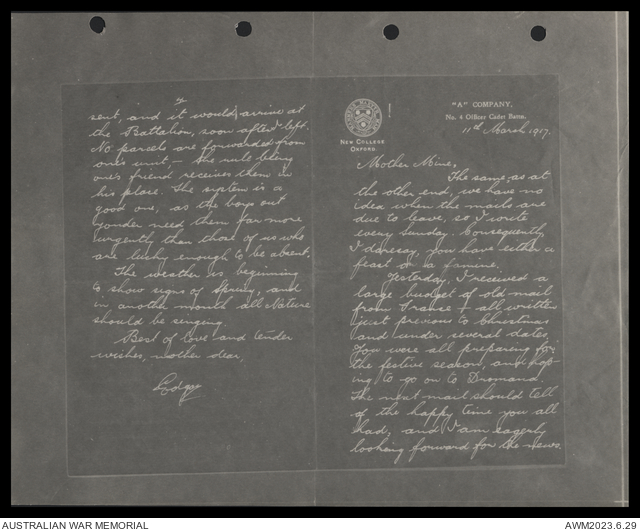 4
sent, and it would arrive at
the Battalion, soon after I left.
No parcels are forwarded from
one's unit, – the rule being
one's friend receives them in
his place. The system is a
good one, as the boys out
yonder need them far more
urgently than those of us who
are lucky enough to be absent.
The weather is beginning
to show signs of Spring, and
in another month all Nature
should be singing.
Best of love and tender
wishes, mother dear,
Edgy
NEW COLLEGE
OXFORD.
"A" COMPANY,
No. 4 Officer Cadet Battn.
11th March 1917.
Mother Mine,
The same, as at
the other end, we have no
idea when the mails are
due to leave, so I write
every Sunday. Consequently,
I daresay, you have either a
feast or a famine.
Yesterday, I received a
large budget of old mail
from France + all written
just previous to Christmas
and under several dates.
You were all preparing for
the festive season, and hop-
ing to go on to Dromana.
The next mail should tell
of the happy time you all
had, and I am eagerly
looking forward for the news.
AUSTRALIAN WAR MEMORIAL
AWM2023.6.29